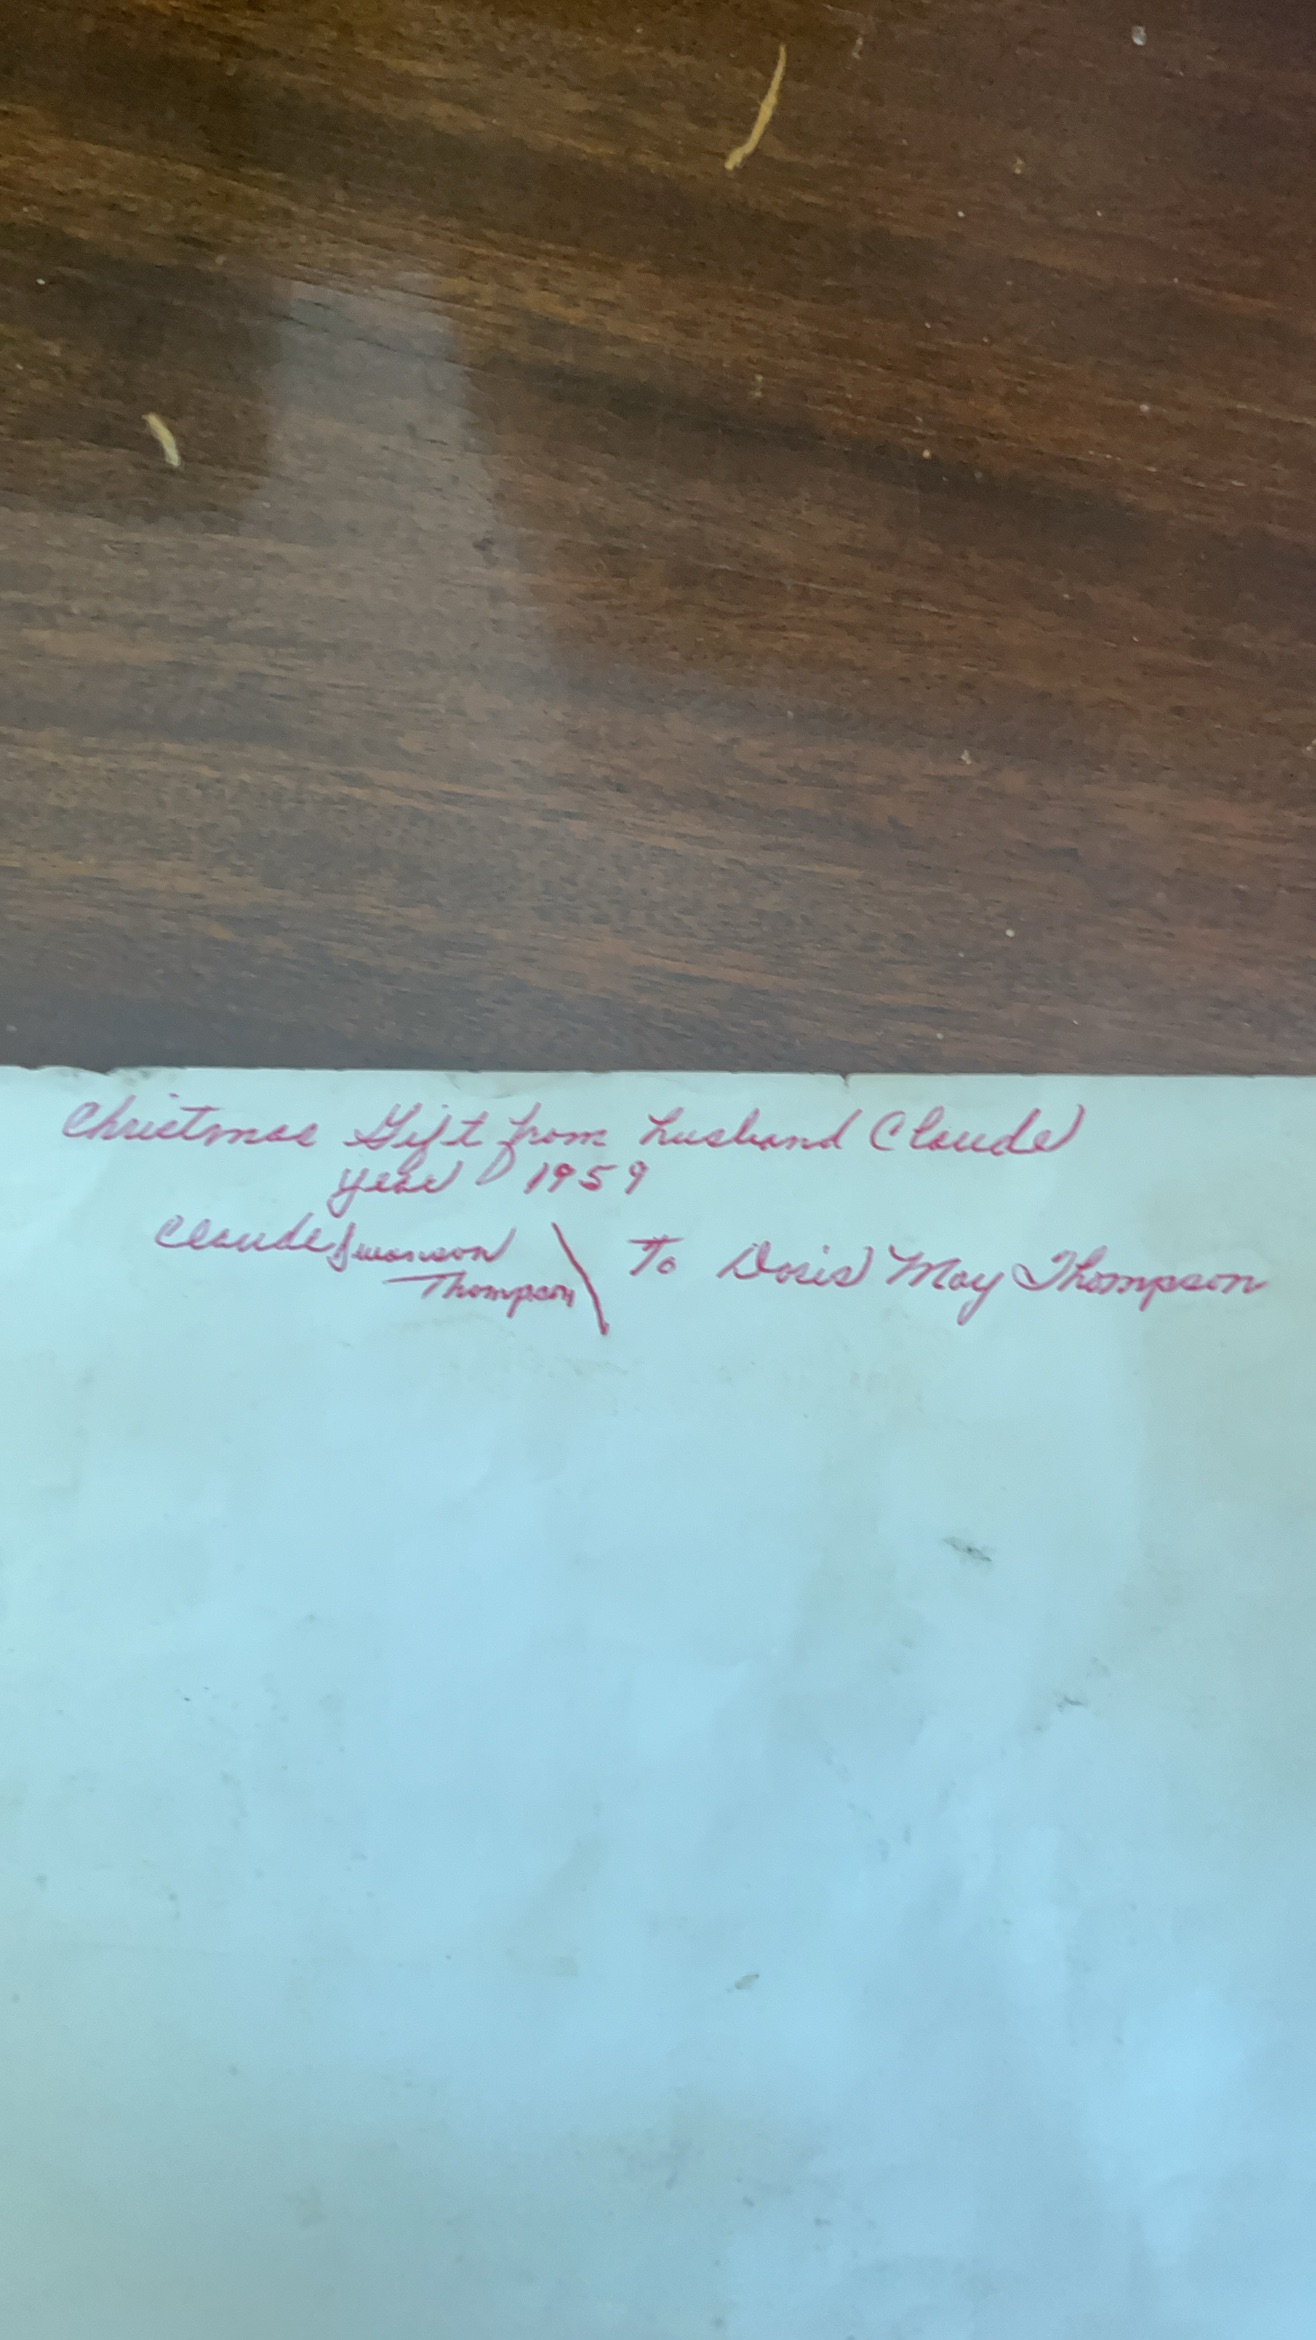 Christmas Gift from husband Claude
year 1959
Claude Swanson
Thompson
To Doris May Thompson